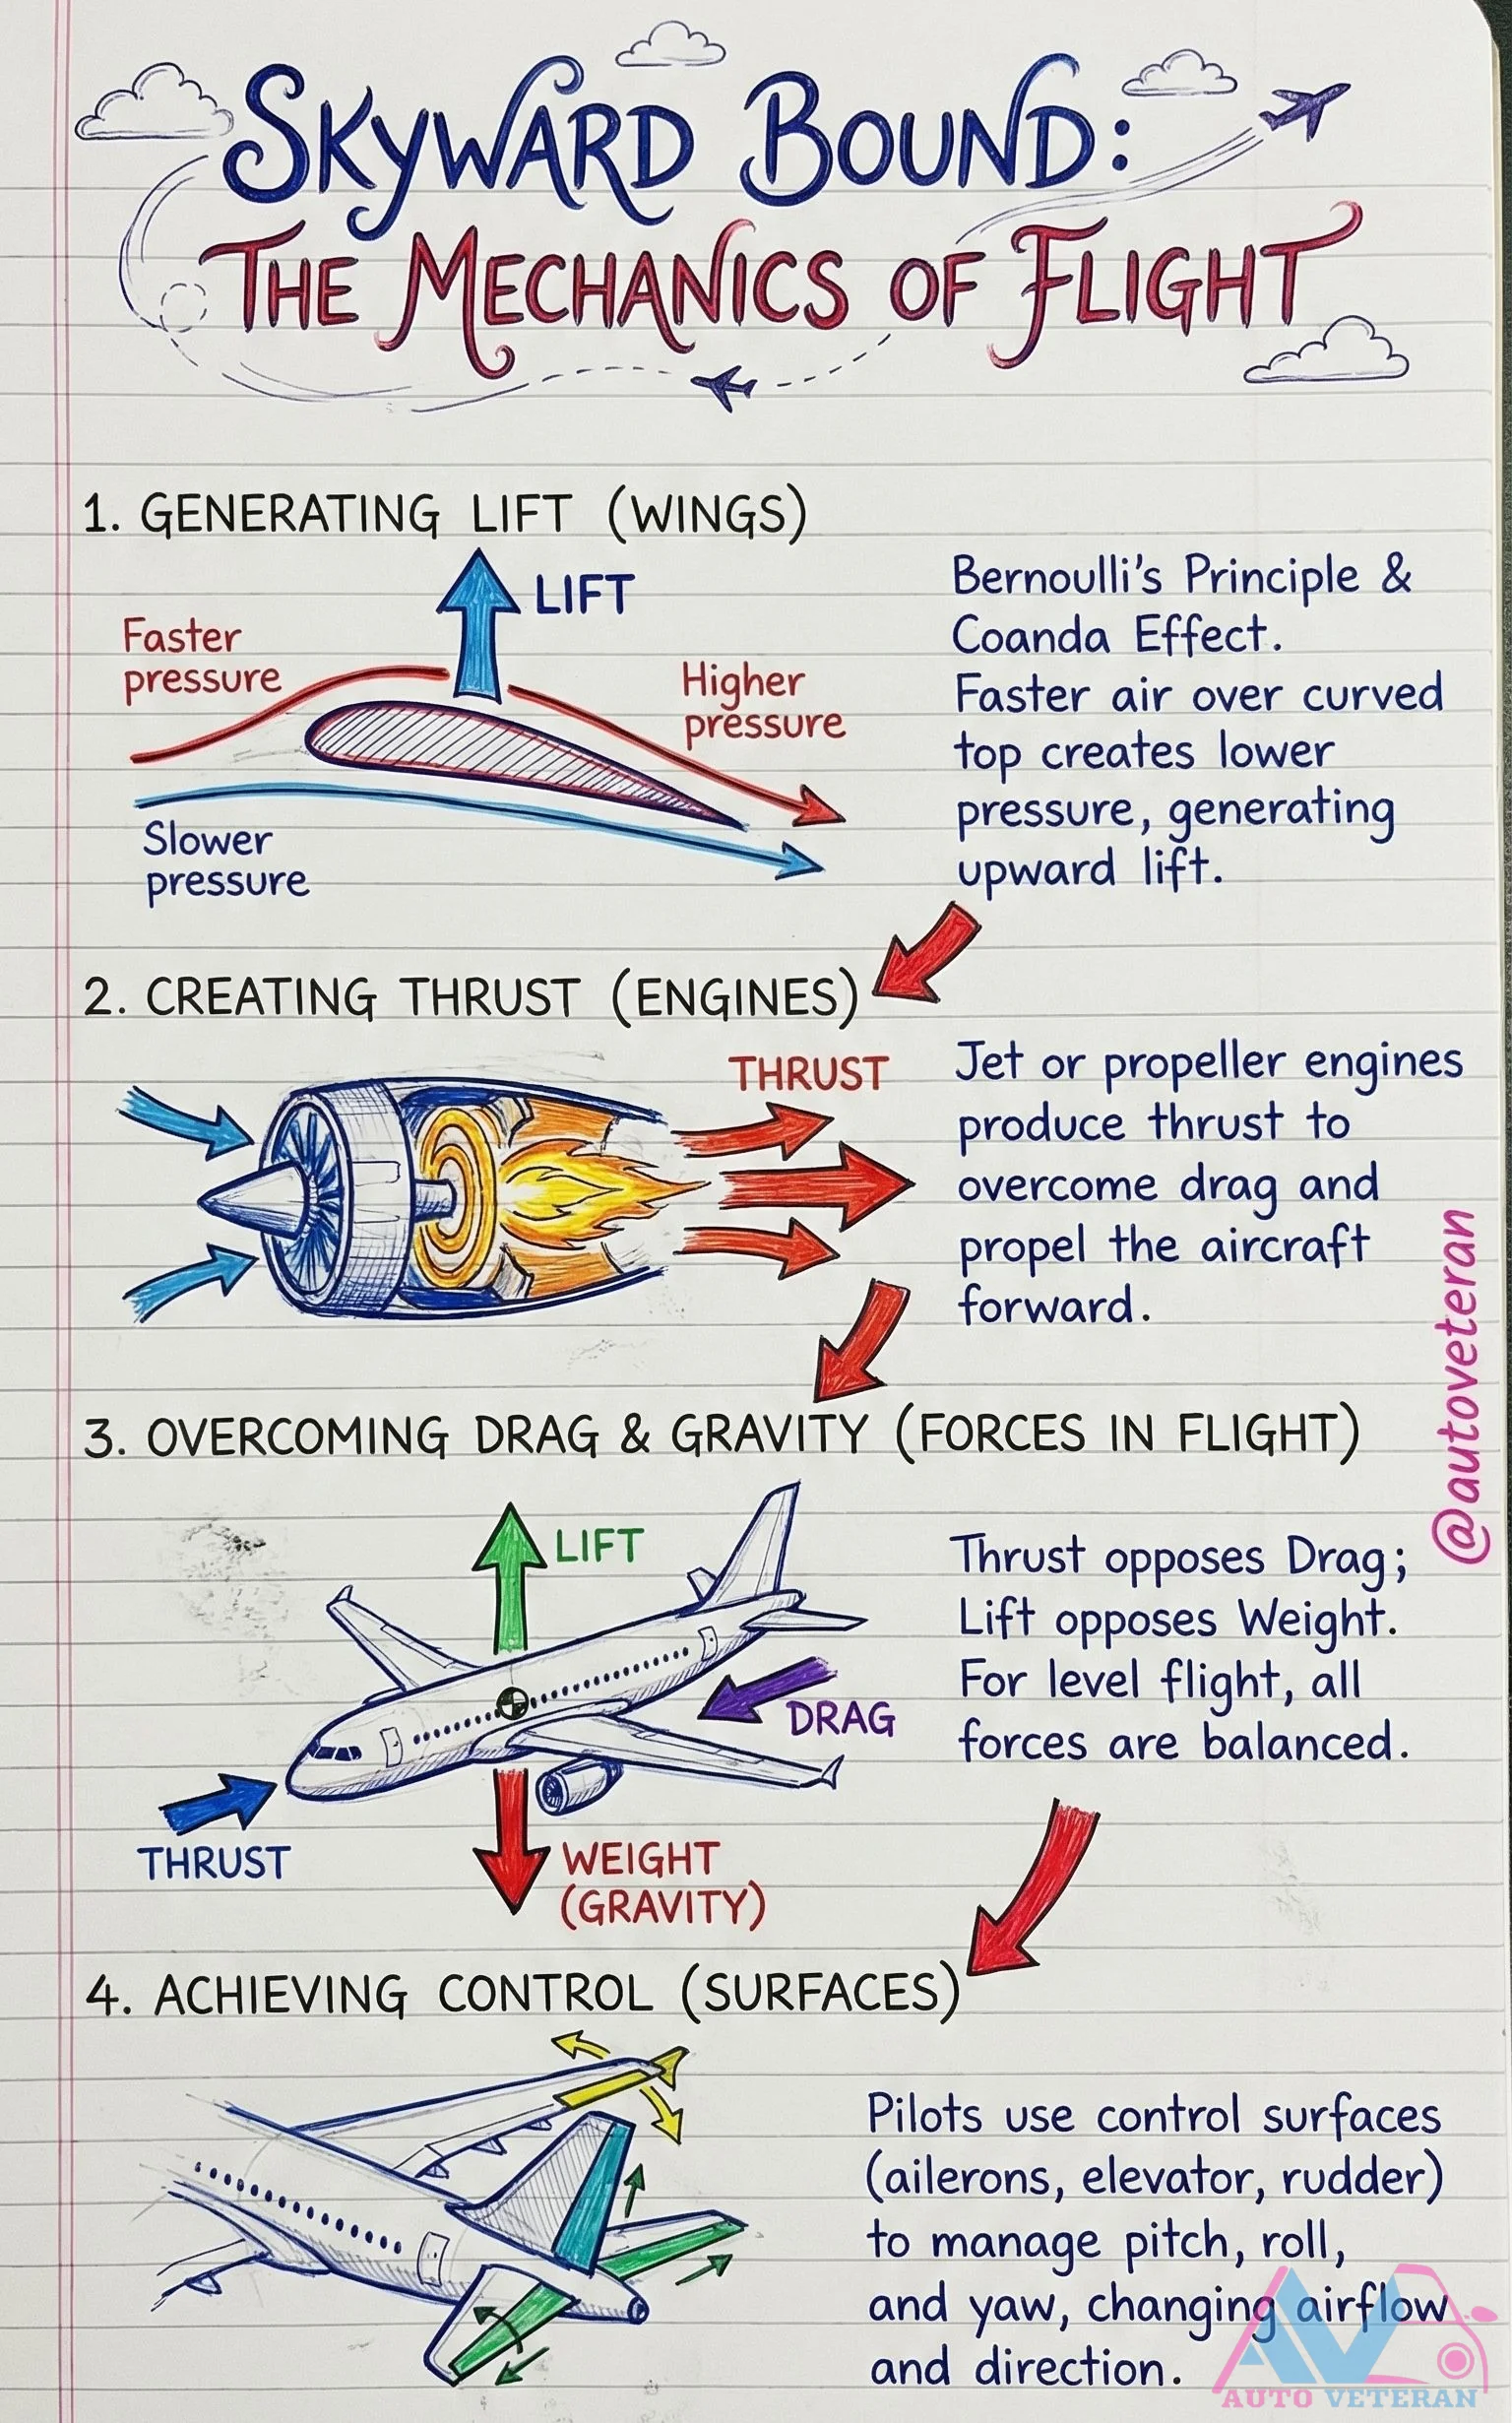 SKYWARD BOUND:
THE MECHANICS OF FLIGHT
1. GENERATING LIFT (WINGS)
LIFT
Faster
pressure
Higher
pressure
Slower
pressure
Bernoulli's Principle &
Coanda Effect.
Faster air over curved
top creates lower
pressure, generating
upward lift.
2. CREATING THRUST (ENGINES)
THRUST
Jet or propeller engines
produce thrust to
overcome drag and
propel the aircraft
forward.
@autoveteran
3. OVERCOMING DRAG & GRAVITY (FORCES IN FLIGHT)
LIFT
DRAG
THRUST
WEIGHT
(GRAVITY)
Thrust opposes Drag;
Lift opposes Weight.
For level flight, all
forces are balanced.
4. ACHIEVING CONTROL (SURFACES)
Pilots use control surfaces
(ailerons, elevator, rudder)
to manage pitch, roll,
and yaw, changing airflow
and direction.
AV
AUTO VETERAN